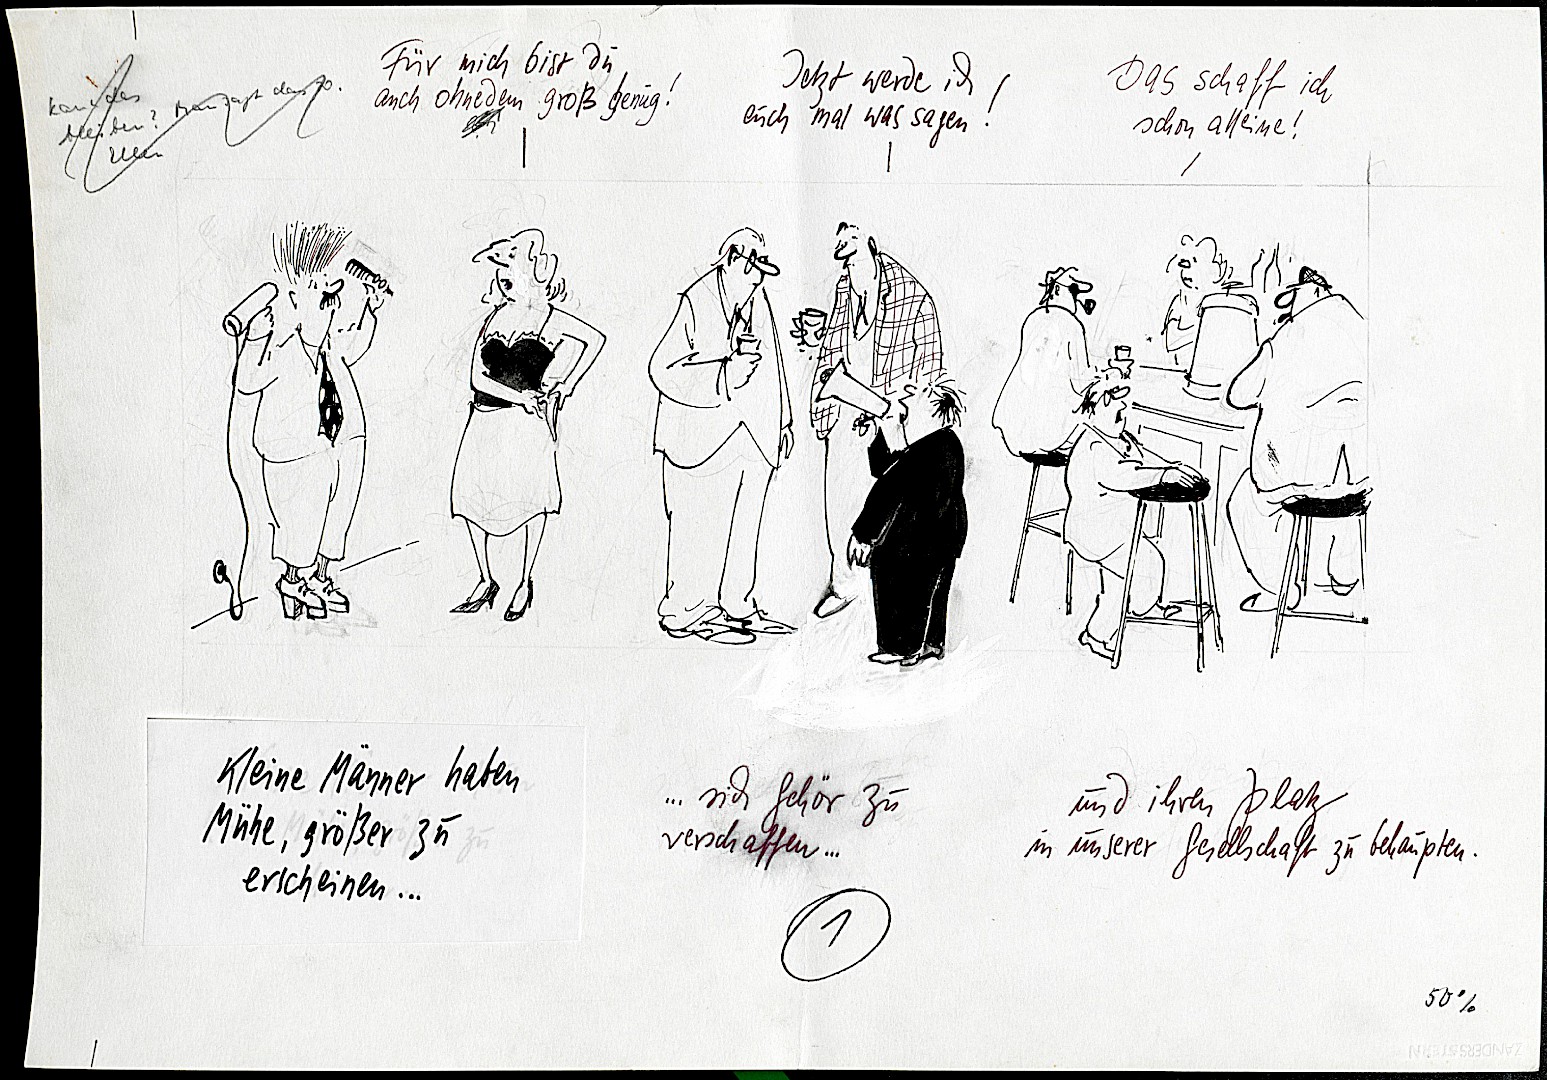 Kann das
bleiben? Man sagt das so.
Nein
Für mich bist Du
auch ohnedem groß genug!
Jetzt werde ich
euch mal was sagen!
Das schaff ich
schon alleine!
Kleine Männer haben
Mühe, größer zu
erscheinen...
... sich Gehör zu
verschaffen...
und ihren Platz
in unserer Gesellschaft zu behaupten.
1
50%
ZANDERS